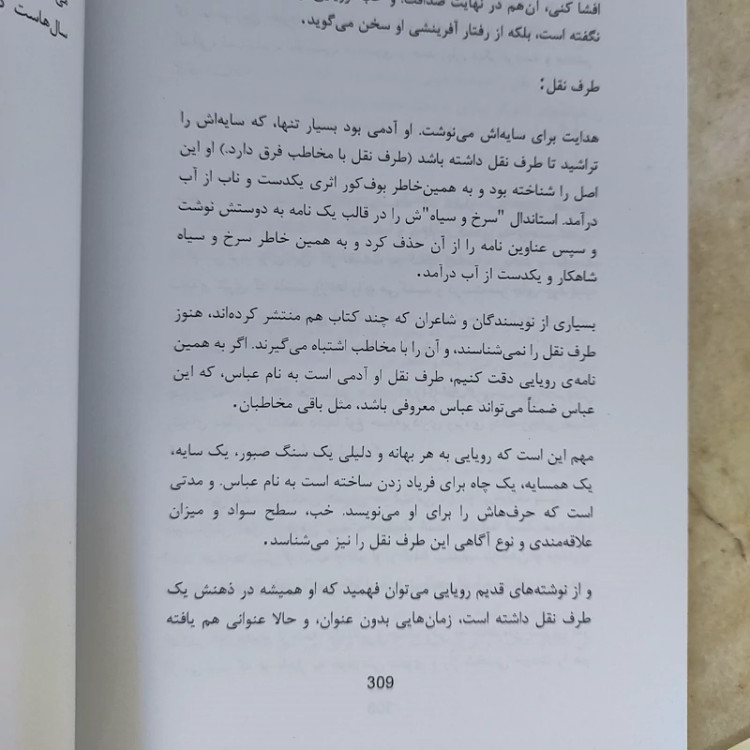 افشا کنی، آن‌هم در نهایت صداقت. و خب
نگفته است، بلکه از رفتار آفرینشی او سخن می‌گوید.
طرف نقل؛
هدایت برای سایه‌اش می‌نوشت. او آدمی بود بسیار تنها، که سایه‌اش را
تراشید تا طرف نقل داشته باشد (طرف نقل با مخاطب فرق دارد.) او این
اصل را شناخته بود و به همین‌خاطر بوف‌کور اثری یکدست و ناب از آب
درآمد. استاندال "سرخ و سیاه"ش را در قالب یک نامه به دوستش نوشت
و سپس عناوین نامه را از آن حذف کرد و به همین خاطر سرخ و سیاه
شاهکار و یکدست از آب درآمد.
بسیاری از نویسندگان و شاعران که چند کتاب هم منتشر کرده‌اند، هنوز
طرف نقل را نمی‌شناسند، و آن را با مخاطب اشتباه می‌گیرند. اگر به همین
نامه‌ی رویایی دقت کنیم، طرف نقل او آدمی است به نام عباس، که این
عباس ضمناً می‌تواند عباس معروفی باشد، مثل باقی مخاطبان.
مهم این است که رویایی به هر بهانه و دلیلی یک سنگ صبور، یک سایه،
یک همسایه، یک چاه برای فریاد زدن ساخته است به نام عباس. و مدتی
است که حرف‌هاش را برای او می‌نویسد. خب، سطح سواد و میزان
علاقه‌مندی و نوع آگاهی این طرف نقل را نیز می‌شناسد.
و از نوشته‌های قدیم رویایی می‌توان فهمید که او همیشه در ذهنش یک
طرف نقل داشته است، زمان‌هایی بدون عنوان، و حالا عنوانی هم یافته
309